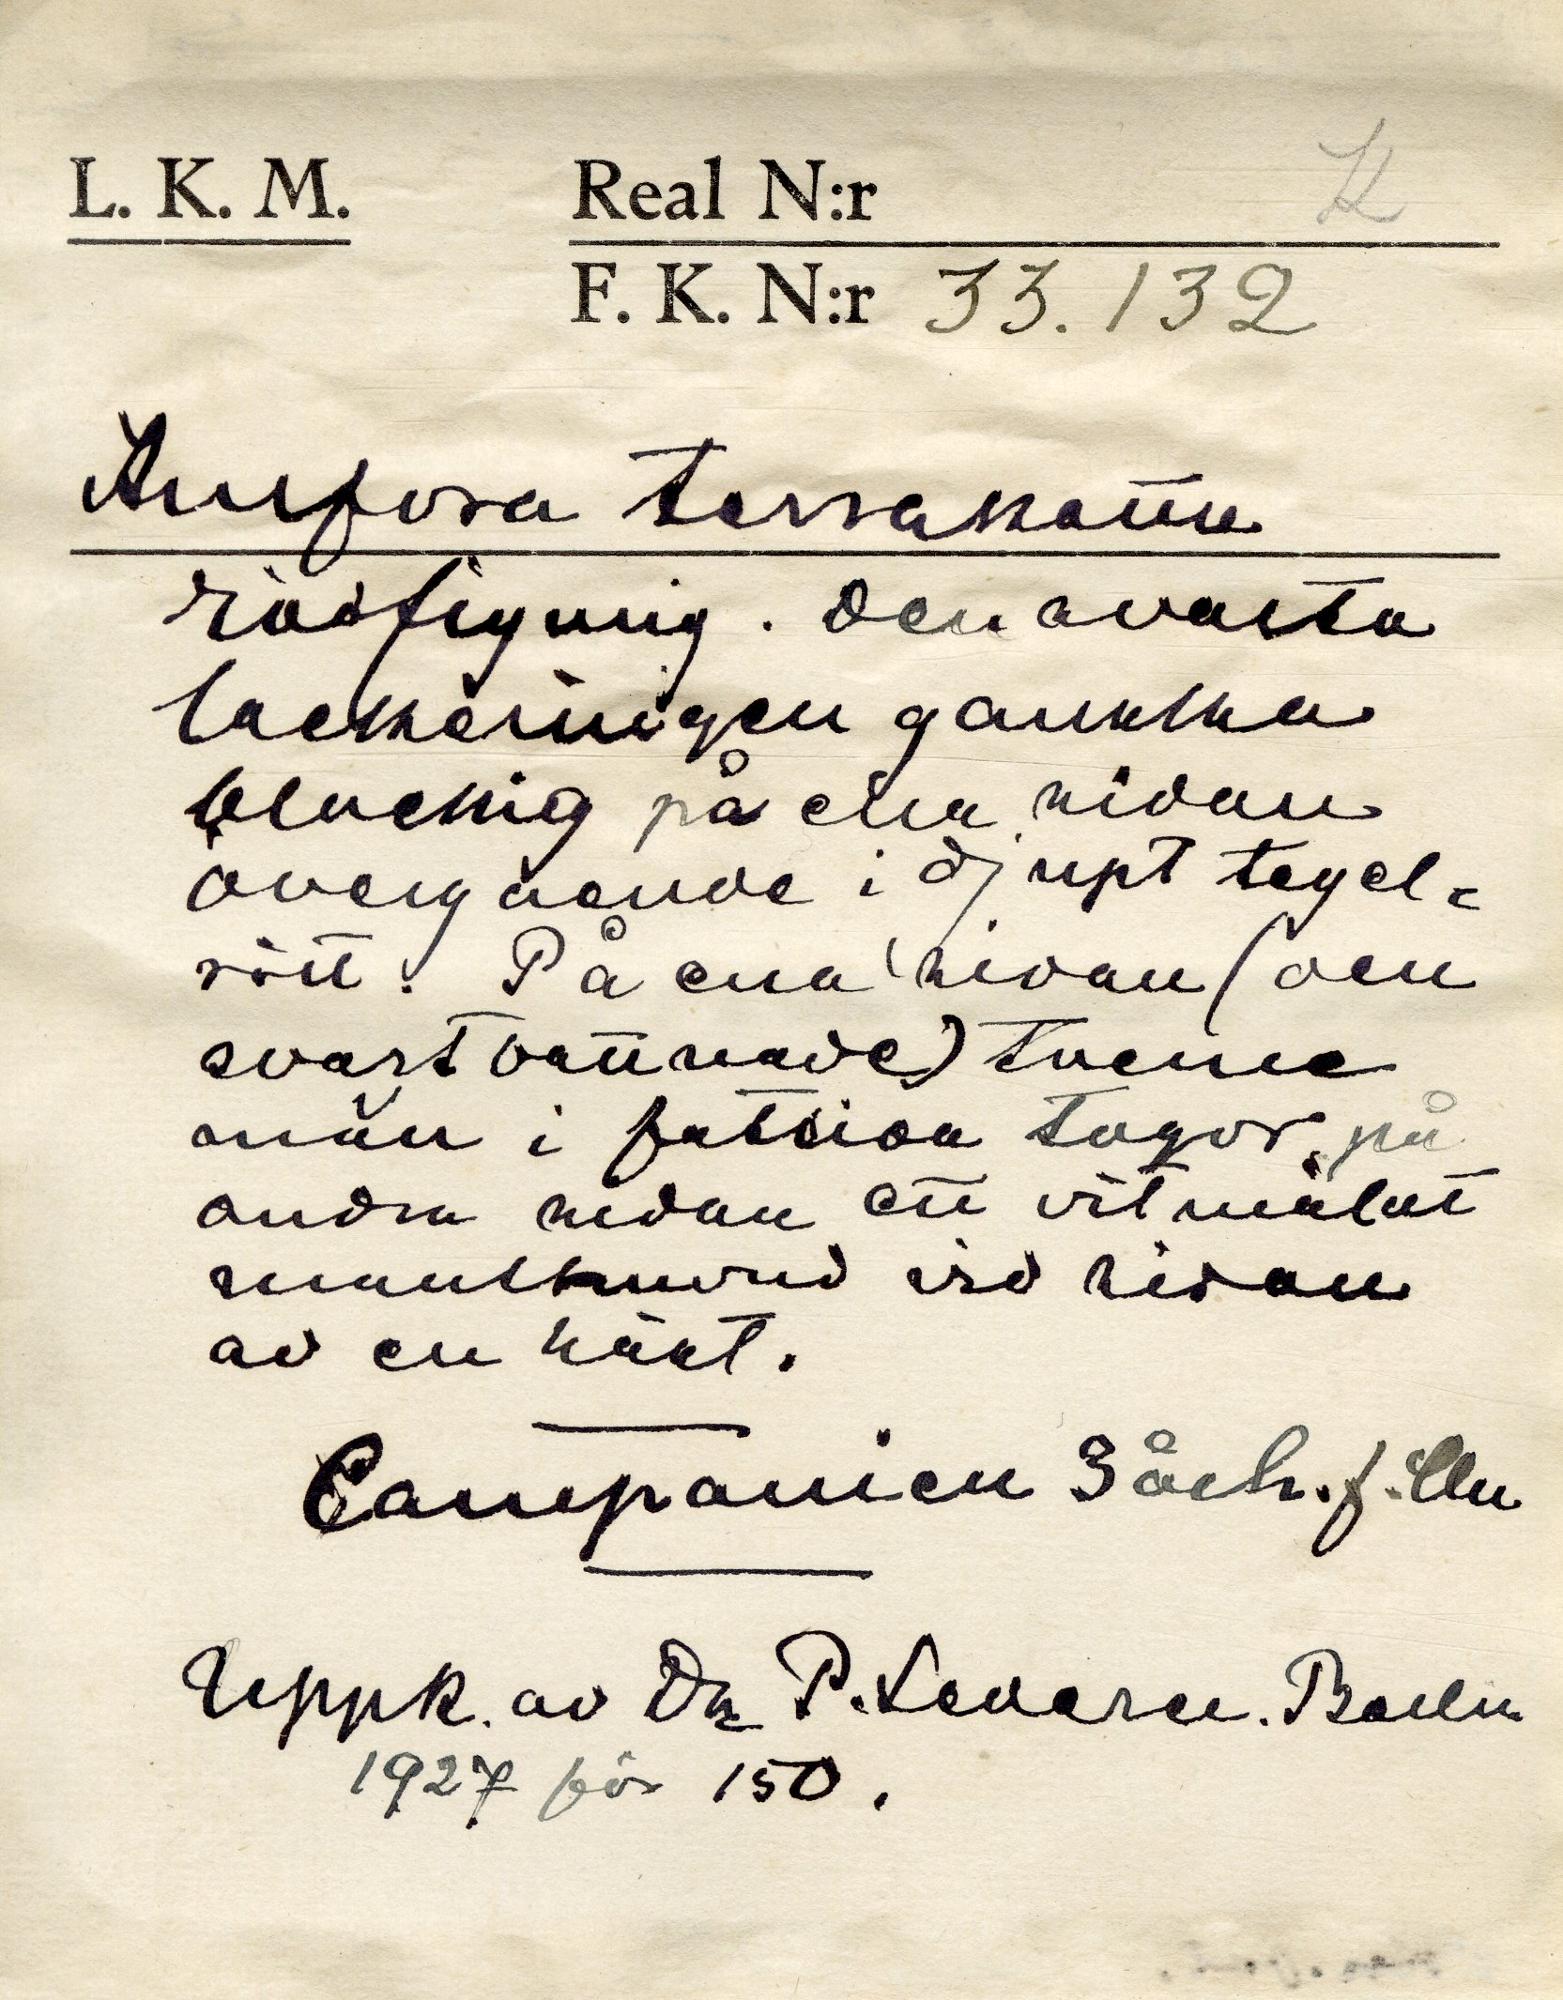 L. K. M.
Real N:r K
F. K. N:r 33.132
Amfora terrakotta
rödfigurig. Den svarta
lackeringen ganska
fläckig på ena sidan
övergående i djupt tegel=
rött. På ena sidan (den
svartbottnade) tvenne
män i fotsida togor, på
andra sidan ett vitmålat
manshuvud vid sidan
av en häst.
Campanien 3 årh. f.
Uppk. av Dr P. Leverse. Berlin
1927 för 150.